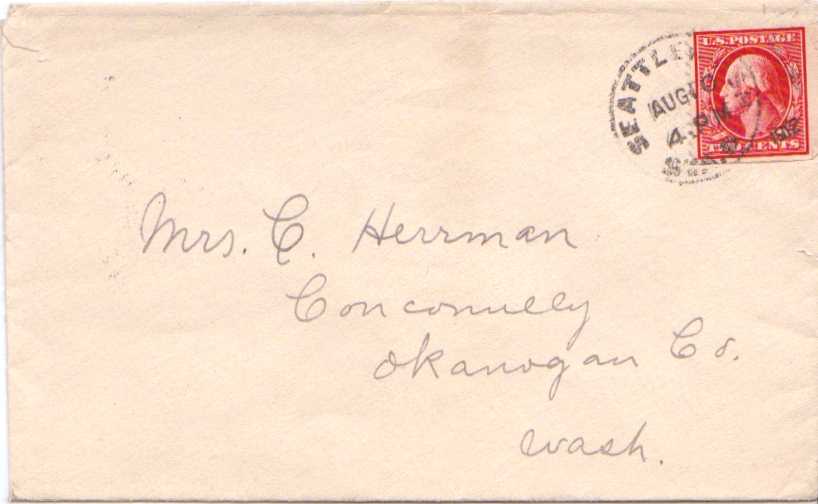 U.S. POSTAGE
SEATTLE
AUG
4 PM
TWO CENTS
Mrs. C. Herrman
Conconnully
Okanogan Co.
Wash.